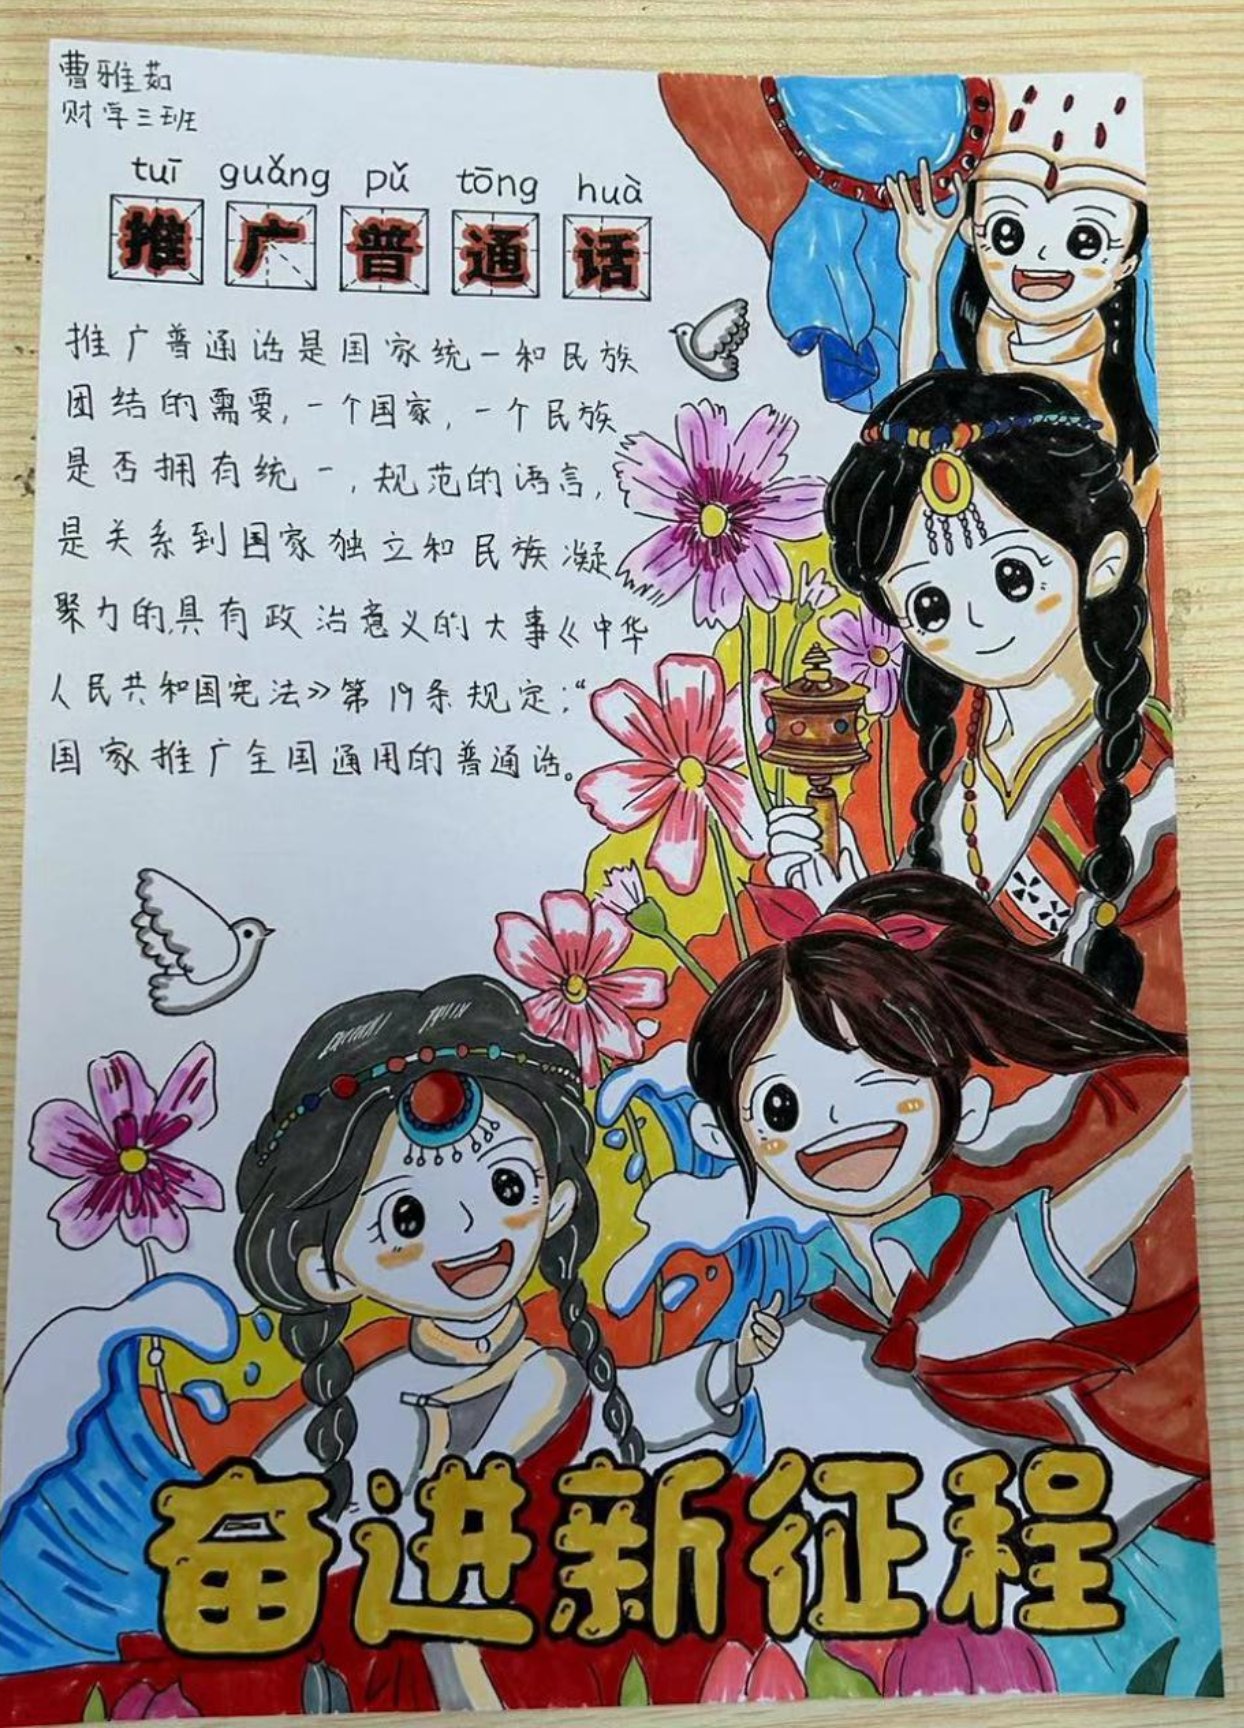 曹雅茹
财学三班
tuī guǎng pǔ tōng huà
推广普通话
推广普通话是国家统一和民族
团结的需要，一个国家，一个民族
是否拥有统一，规范的语言，
是关系到国家独立和民族凝
聚力的具有政治意义的大事《中华
人民共和国宪法》第19条规定：“
国家推广全国通用的普通话。
奋进新征程